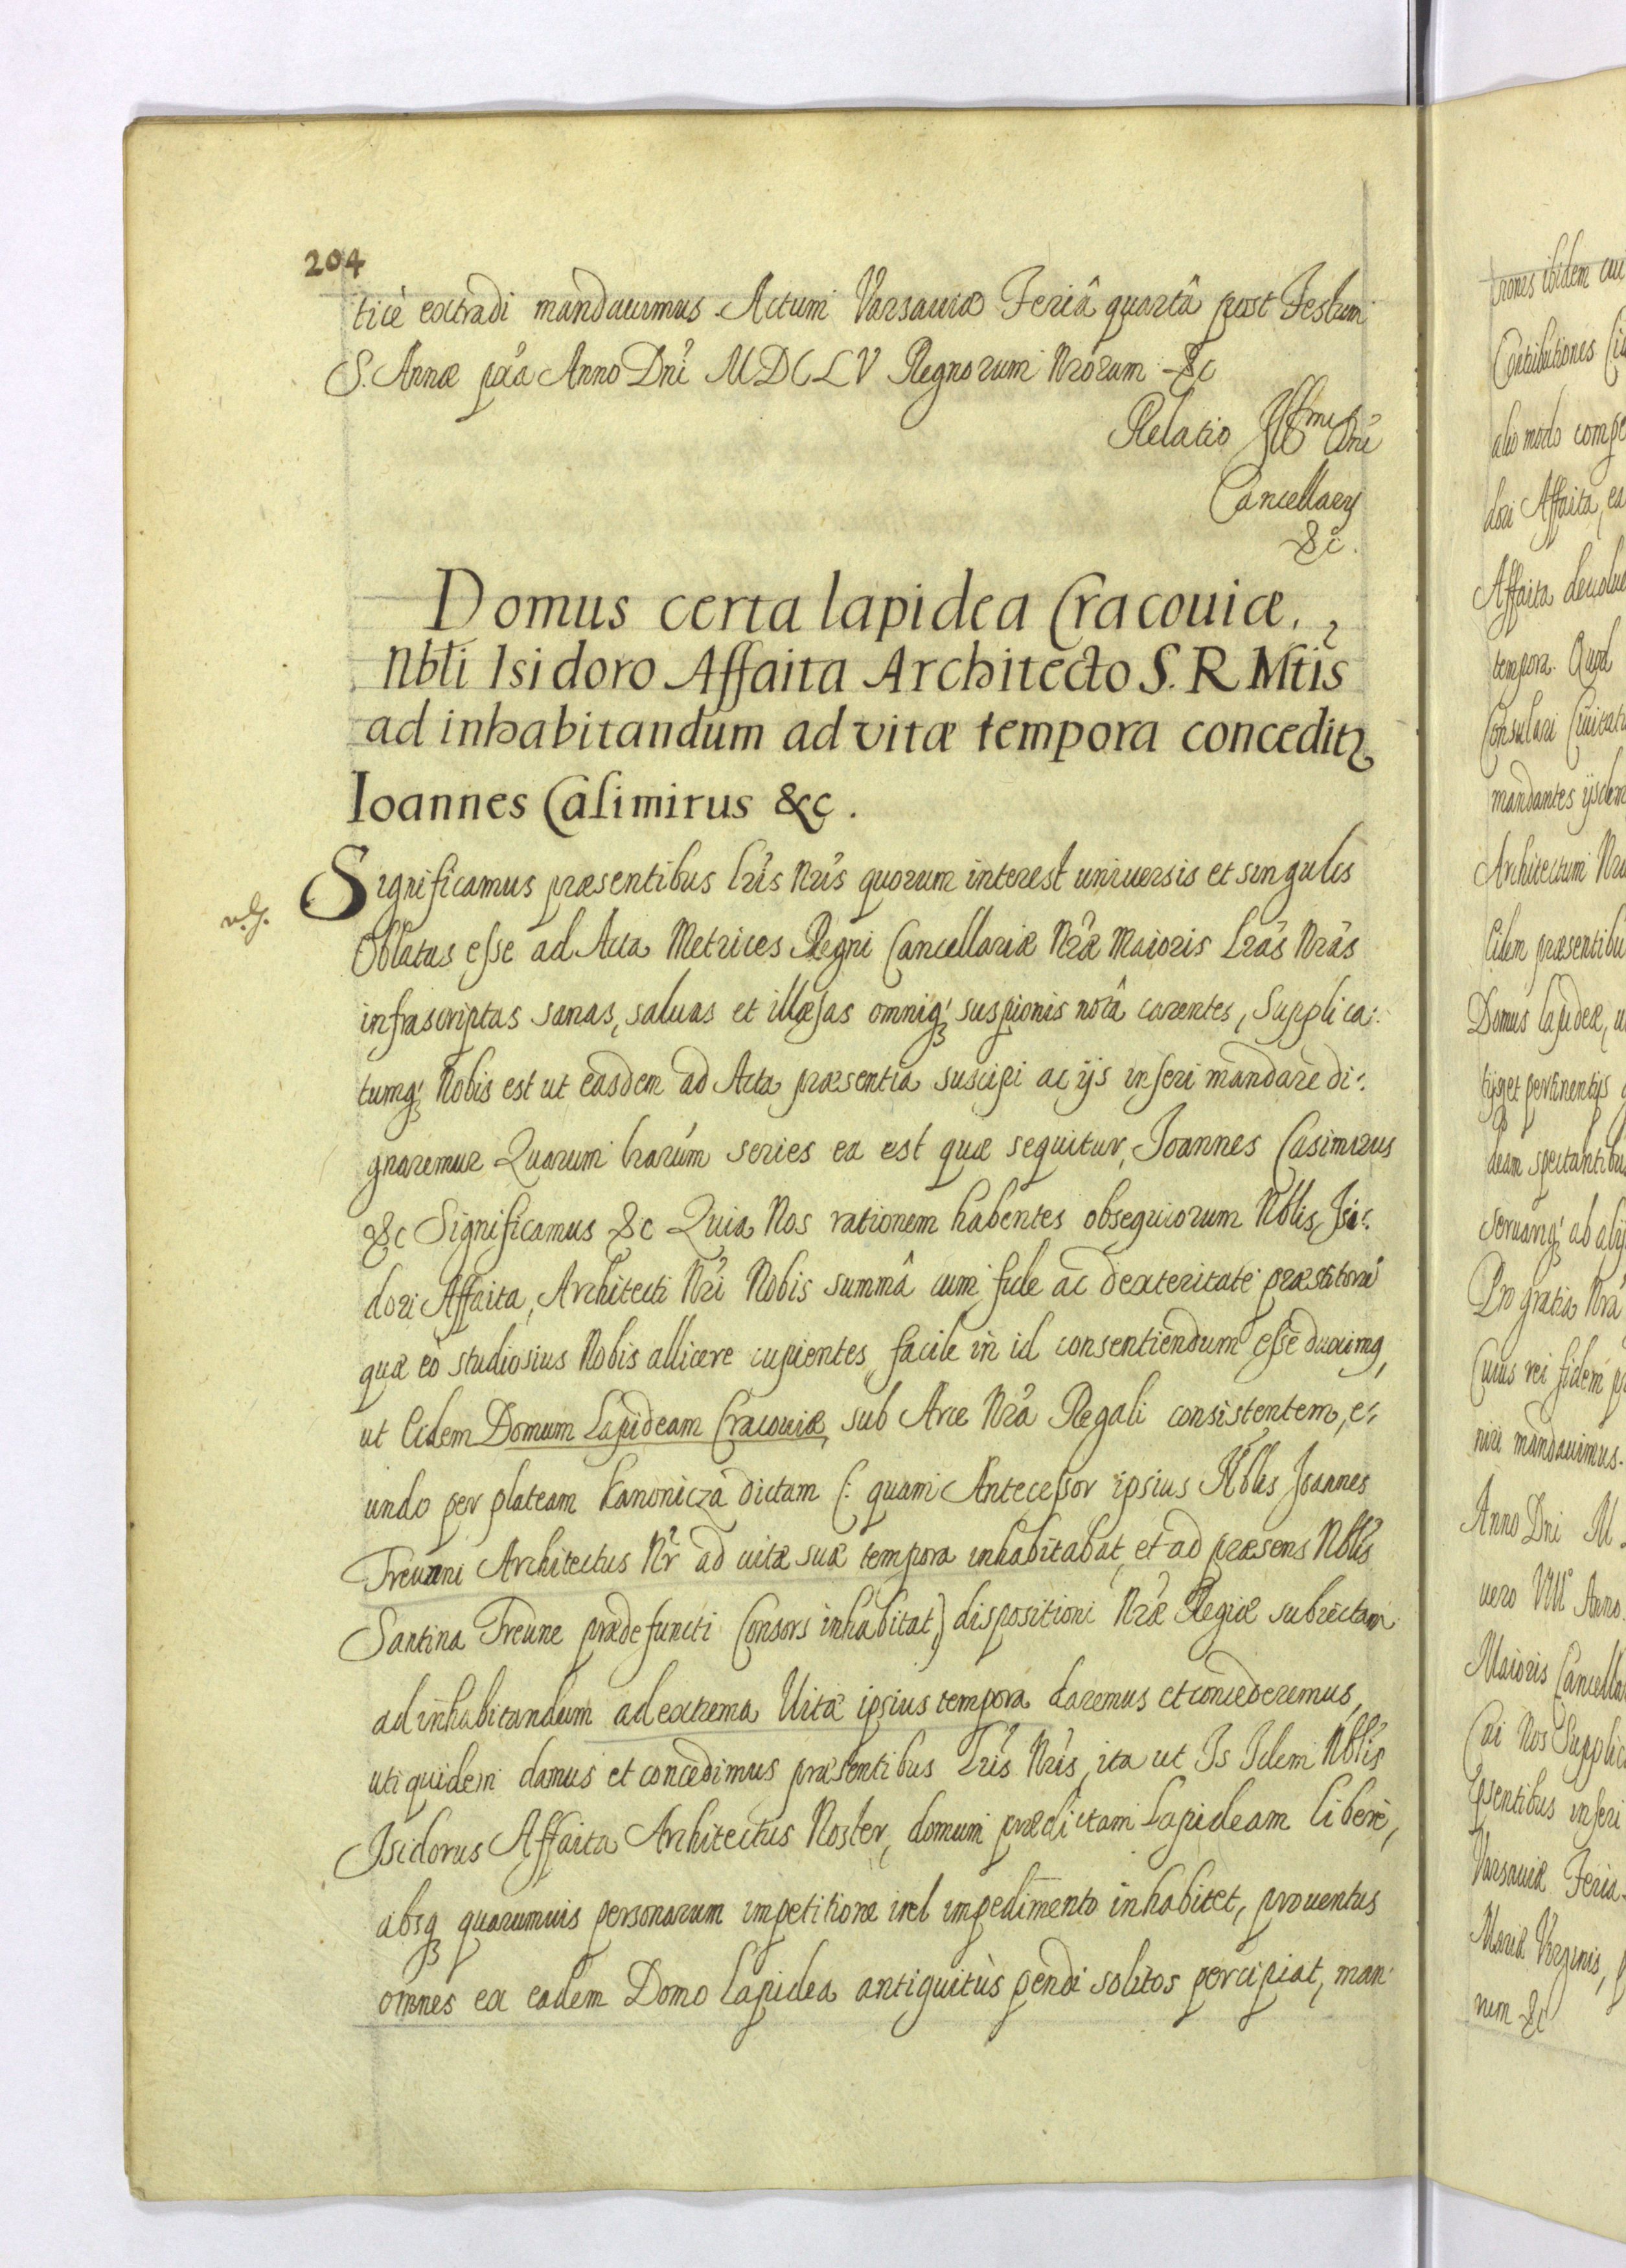 204
ticè extradi mandauimus. Actum Varsauiæ Feriâ quartâ post Festum
S. Annæ pxa Anno Dni MDCLV Regnorum Nrorum &c
Relatio Illmi Dni
Cancellarij
&c.
Domus certa lapidea Cracouiæ,
Nbli Isidoro Affaita Architecto S. R Mtis
ad inhabitandum ad vitæ tempora conceditz
Ioannes Casimirus &c.
Significamus præsentibus lris Nris quorum interest uniuersis et singulis
Oblatas esse ad Acta Metrices Regni Cancellariæ Nræ Maioris Lras Nras
infrascriptas sanas, saluas et illæsas omniq; suspionis notâ carentes, Supplica:
tumq; Nobis est ut easdem ad Acta præsentia suscipi ac ijs inseri mandare di:
gnaremur Quarum lrarum series ea est quæ sequitur, Joannes Casimirus
&c Significamus &c Quia Nos rationem habentes obsequiorum Nblis Isi:
dori Affaita, Architecti Nri Nobis summâ cum fide ac dexteritate præstitorũ
quæ eò studiosius Nobis allicere cupientes, facile in id consentiendum esse duximq,
ut Eidem Domum Lapideam Cracouiæ, sub Arce Nra Regali consistentem, e:
undo per plateam Kanonicza dictam (: quam Antecessor ipsius Nblis Joannes
Treuani Architectus Nr ad uitæ suæ tempora inhabitabat, et ad præsens Nblis
Santina Treune prædefuncti Consors inhabitat,) dispositioni Nræ Regiæ subiectam
ad inhabitandum ad extrema Uitæ ipsius tempora daremus et concederemus,
uti quidem damus et concedimus præsentibus Lris Nris, ita ut Is Idem Nblis
Isidorus Affaita Architectus Noster, domum prædictam Lapideam liberè,
absq; quarumuis personarum impetitione uel impedimento inhabitet, prouentus
omnes ex eadem Domo lapidea antiquitùs pendi solitos percipiat, man:
tiones ibidem
Contributiones
alio modo compe
dori Affaita, ea
Affaita deuolue
tempora. Quod
Consulari Ciuitatis
mandantes ijsdem
Architectum Nr
Eidem præsentibu
Domus lapideæ, u
tijs et pertinentijs
deam spectantibus
seruanq; ab alij
Pro gratia Nra
Cuius rei fidem
niri mandauimus.
Anno Dni M
uero VIII Anno
Maioris Cancella
Cui Nos Supplic
psentibus inseri
Varsauiæ Feria
Mariæ Virginis,
rum &c